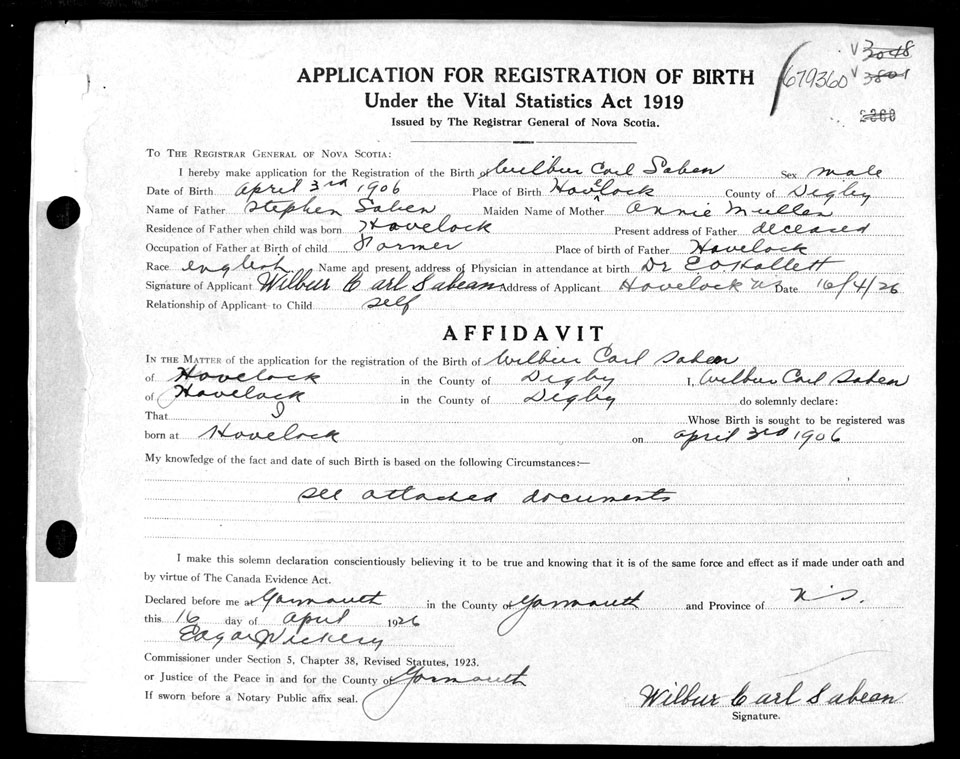 APPLICATION FOR REGISTRATION OF BIRTH
679360
V 3048
V 3801
Under the Vital Statistics Act 1919
Issued by The Registrar General of Nova Scotia.
To The Registrar General of Nova Scotia:
I hereby make application for the Registration of the Birth of Wilbur Carl Saben Sex male
Date of Birth April 3rd 1906 Place of Birth Havelock County of Digby
Name of Father Stephen Saben Maiden Name of Mother Annie Mullen
Residence of Father when child was born Havelock Present address of Father deceased
Occupation of Father at Birth of child Farmer Place of birth of Father Havelock
Race English Name and present address of Physician in attendance at birth Dr E O Hallett
Signature of Applicant Wilbur Carl Sabean Address of Applicant Havelock NS Date 16/4/26
Relationship of Applicant to Child self
AFFIDAVIT
In the Matter of the application for the registration of the Birth of Wilbur Carl Saben
of Havelock in the County of Digby I, Wilbur Carl Saben
of Havelock in the County of Digby do solemnly declare:
That I Whose Birth is sought to be registered was
born at Havelock on April 3rd 1906
My knowledge of the fact and date of such Birth is based on the following Circumstances:—
see attached documents
I make this solemn declaration conscientiously believing it to be true and knowing that it is of the same force and effect as if made under oath and
by virtue of The Canada Evidence Act.
Declared before me at Yarmouth in the County of Yarmouth and Province of N S.
this 16 day of April 1926
Edgar Vickery
Commissioner under Section 5, Chapter 38, Revised Statutes, 1923.
or Justice of the Peace in and for the County of Yarmouth
If sworn before a Notary Public affix seal.
Wilbur Carl Sabean
Signature.